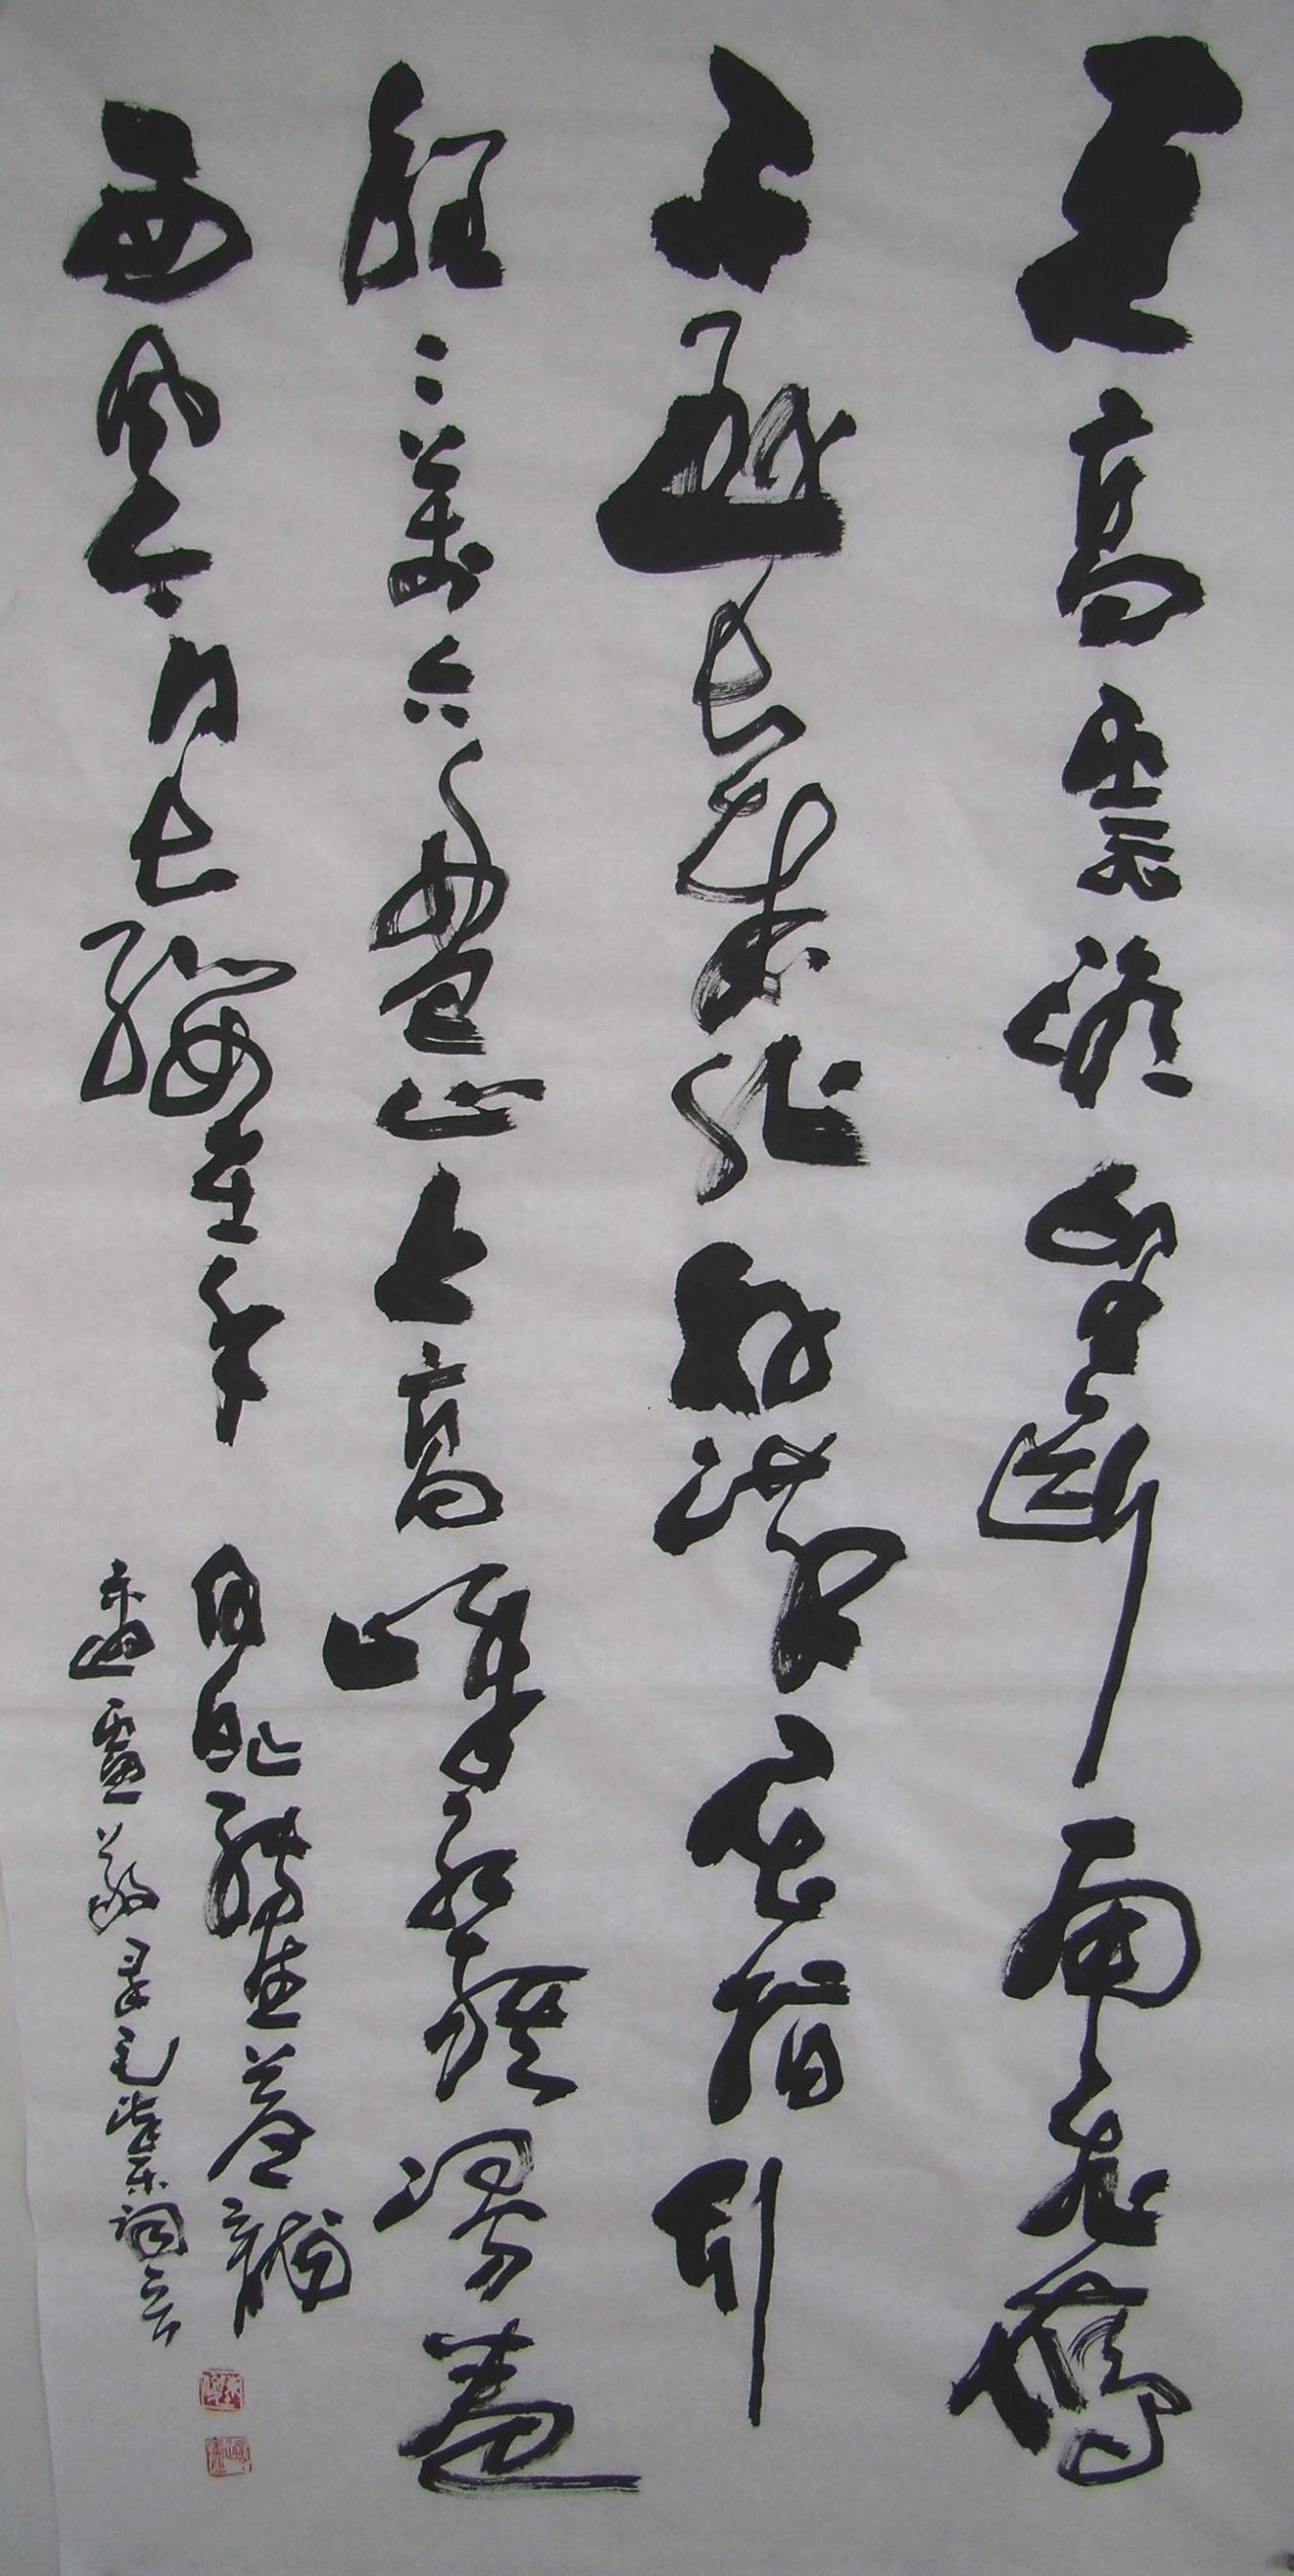 天高雲淡望斷南飛鴈
不到長城非好漢屈指行
程二萬六盤山上高峰紅旗漫卷
西風今日長纓在手
何時縛住蒼龍
敬录毛澤东詞